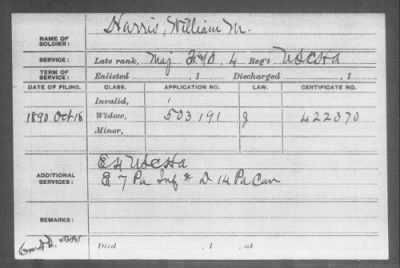 NAME OF SOLDIER: Harris, William M.
SERVICE: Late rank, Maj 4 Reg't USCHA
TERM OF SERVICE: Enlisted , 1 Discharged , 1
DATE OF FILING. CLASS. APPLICATION NO. LAW. CERTIFICATE NO.
Invalid,
1890 Oct 16 Widow, 503 191 J 422370
Minor,
ADDITIONAL SERVICES: E 4 USCHA
E 7 Pa Inf & D 14 Pa Cav
REMARKS:
Died , 1 , at